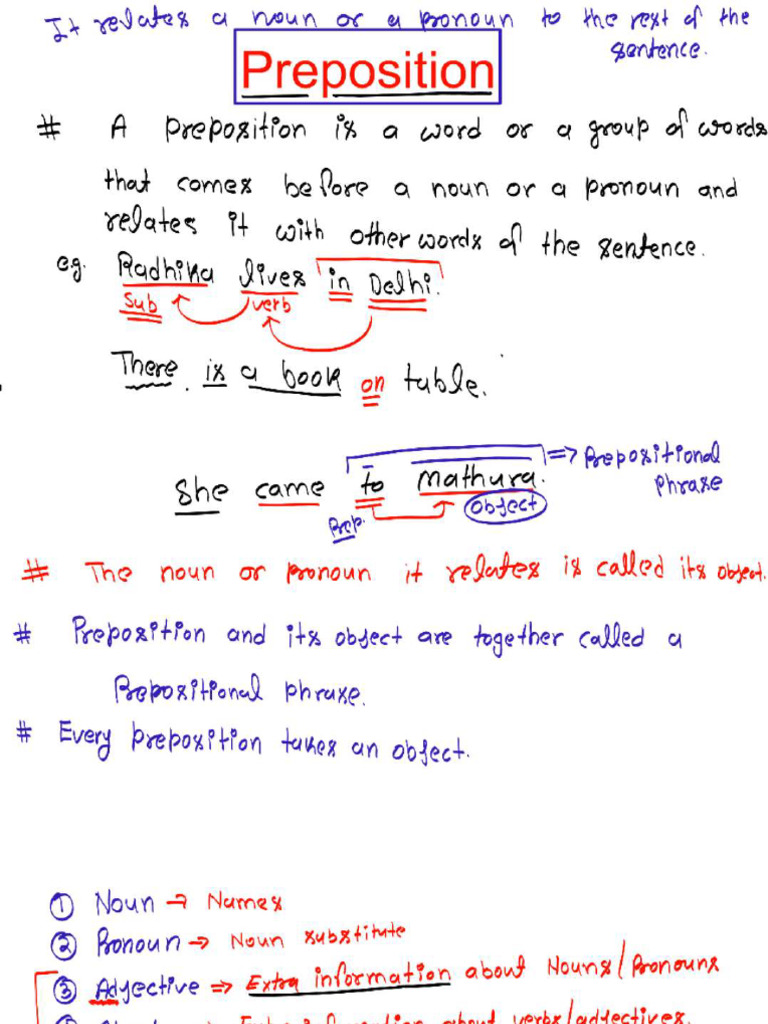 It relates a noun or a pronoun to the rest of the
sentence.
Preposition
# A preposition is a word or a group of words
that comes before a noun or a pronoun and
relates it with other words of the sentence.
eg. Radhika lives in Delhi.
Sub verb
There is a book on table.
She came to mathura. => Prepositional
phrase
Prep. object
# The noun or pronoun it relates is called its object.
# Preposition and its object are together called a
Prepositional phrase.
# Every preposition takes an object.
① Noun → Names
② Pronoun → Noun substitute
③ Adjective => Extra information about Nouns/Pronouns
about verbs/adjectives.